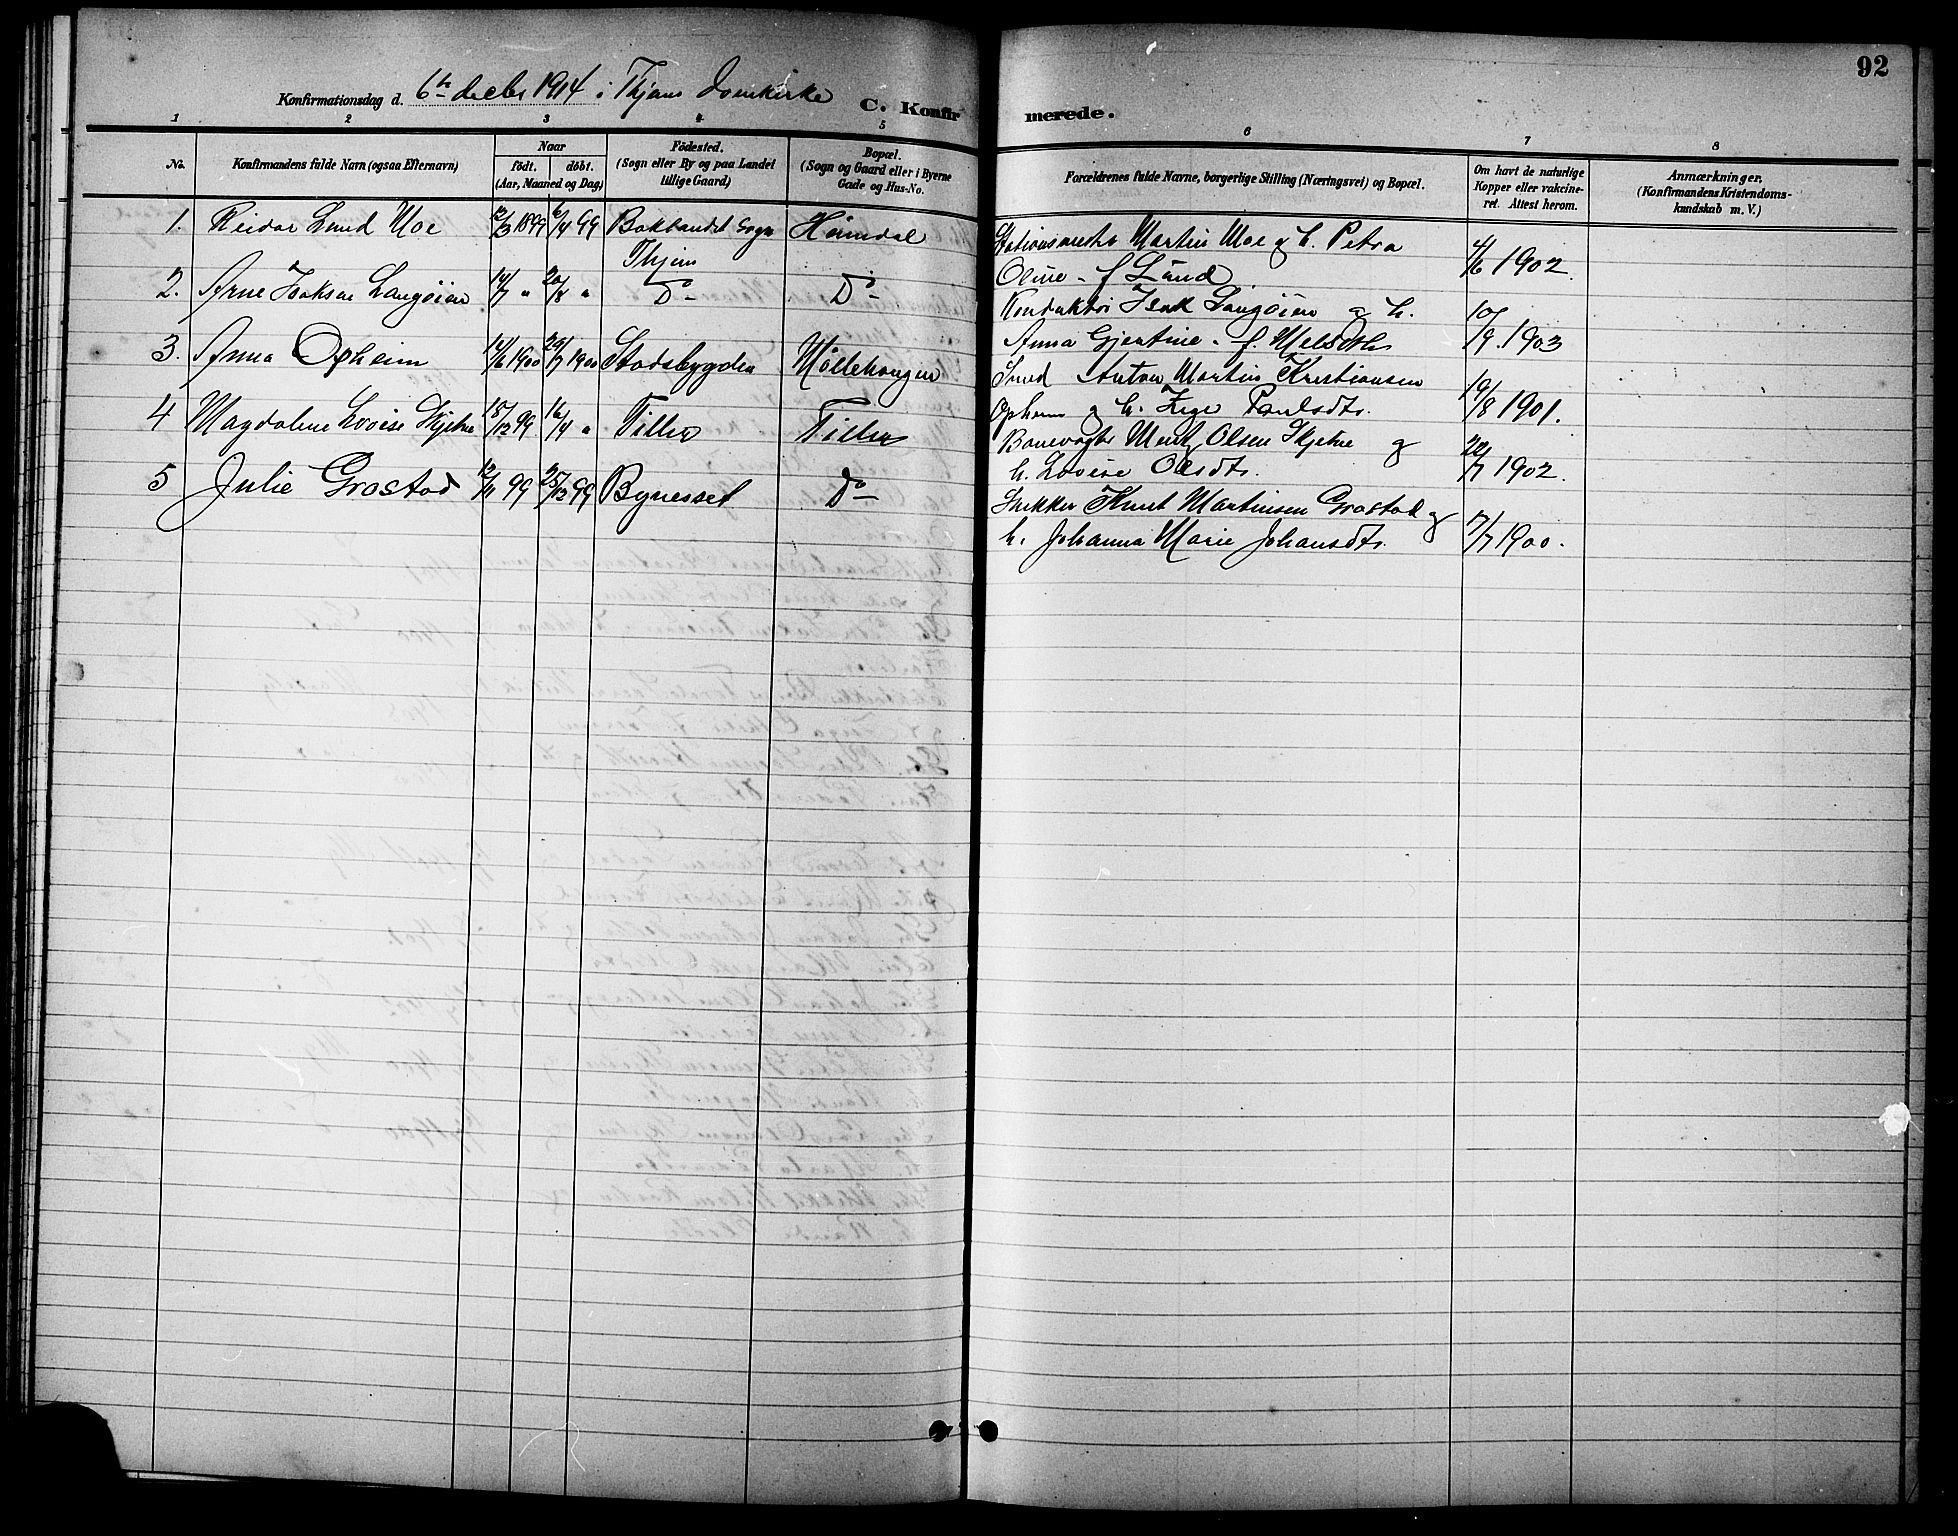 92
Konfirmationsdag d. 6te decbr 1914 i Thjems Domkirke C. Konfirmerede.
1 2 3 4 5 6 7 8
No.
Konfirmandens fulde Navn (ogsaa Efternavn)
Naar
født. døbt.
(Aar, Maaned og Dag)
Födested.
(Sogn eller By og paa Landet
tillige Gaard)
Bopæl.
(Sogn og Gaard eller i Byerne
Gade og Hus-No.
Forældrenes fulde Navne, borgerlige Stilling (Næringsvei) og Bopæl.
Om havt de naturlige
Kopper eller vakcine-
ret. Attest herom.
Anmærkninger,
(Konfirmandens Kristendoms-
kundskab m. V.)
1. Reidar Lund Moe 12/3 1899 6/4 99 Baklandet Sogn Heimdal
Thjem
Stationsmester Martin Moe og h. Petra
Oline f. Lund 4/6 1902.
2. Arne Isaksen Langöien 14/7 " 20/8 " Do Do
Konduktör Isak Langöien og h.
Anna Gjertine f. Melseth 10/9 1903
3. Anna Opheim 14/6 1900 29/7 1900 Stadsbygden Möllehaugen
Smed Anton Martin Kristiansen
Opheim og h. Paulsdtr. 19/8 1901.
4 Magdalene Lovise Skjetne 15/12 99 16/4 " Tiller Tiller
Banevogter Mentz Olsen Skjetne og
h. Lovise Olsdtr. 22/7 1902.
5 Julie Grostad 12/11 99 25/12 99 Bynesset Do
Snekker Knut Martinsen Grostad og
h. Johanna Marie Johansdtr. 7/7 1900.